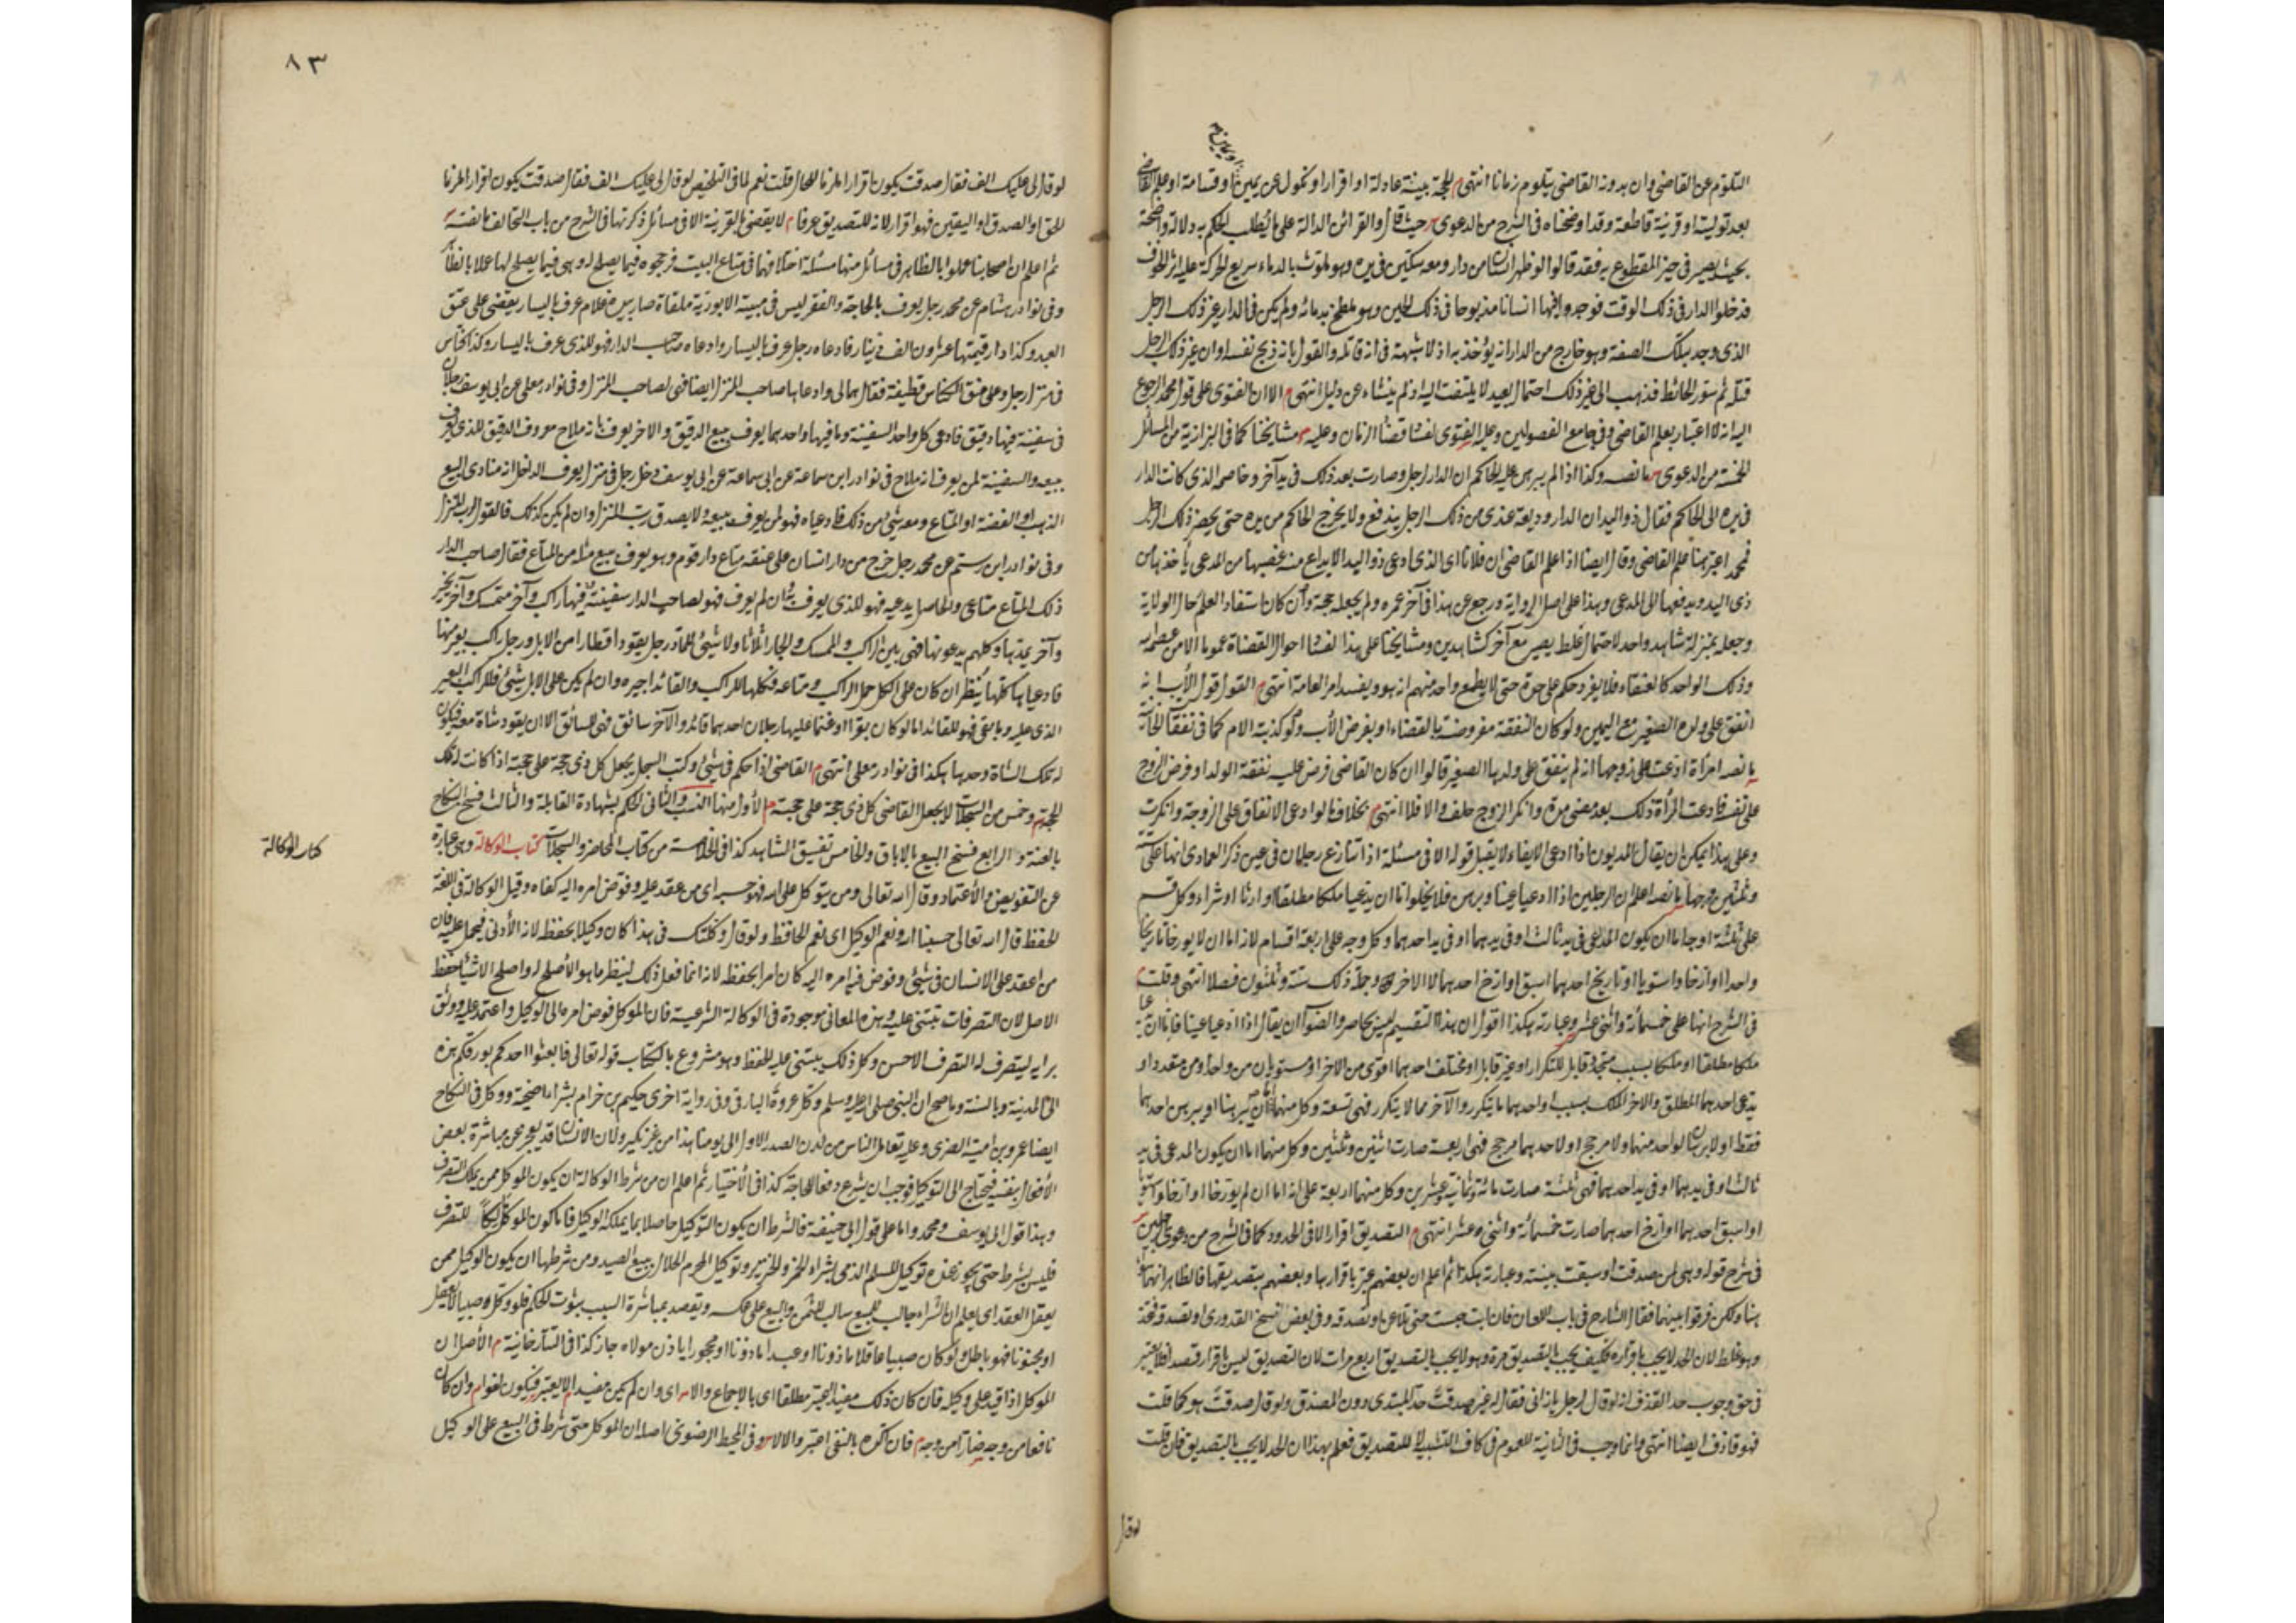 التلوم عن القاضي وان بدونه القاضي يتلوم زمانا انتهى م الحجة بينة عادلة او اقرار او نكول عن يمين او قسامة او علم القاضي
بعد توليته او قرينة قاطعة وقد اوضحناه في الشرح من الدعوى حيث قال والقرائن الدالة على ما يطلب الحكم به دلالة واضحة
بحيث يصير في حيز المقطوع به فقد قالوا لو ظهر انسان من دار ومعه سكين في يده وهو ملوث بالدماء سريع الحركة عليه اثر الخوف
فدخلوا الدار في ذلك الوقت فوجدوا فيها انسانا مذبوحا في ذلك الحين وهو ملطخ بدمائه ولم يكن في الدار غير ذلك الرجل
الذي وجد بتلك الصفة وهو خارج من الدار انه يؤخذ به اذ لا شبهة في انه قاتله والقول بانه ذبح نفسه او ان غير ذلك الرجل
قتله ثم تسور الحائط فذهب الى غير ذلك احتمال بعيد لا يلتفت اليه اذ لم ينشاء عن دليل انتهى م الا ان الفتوى على قول محمد المرجوع
اليه انه لا اعتبار بعلم القاضي وفي جامع الفصولين وعليه الفتوى لفساد قضاة الزمان وعليه مشايخنا كما في البزازية من المسائل
الخمسة من الدعوى ما نصه وكذا اذا لم يبرهن على الحاكم ان الدار لرجل وصارت بعد ذلك في يد آخر وخاصمه الذي كانت الدار
في يده الى الحاكم فقال ذو اليد ان الدار وديعة عندي من ذلك الرجل يندفع ولا يخرج الحاكم من يده حتى يحضر ذلك الرجل
فمحمد اعتبر هنا علم القاضي وقال ايضا اذا علم القاضي ان فلانا اي الذي ادعى ذو اليد الايداع منه غصبها من المدعي يأخذها من
ذي اليد ويدفعها الى المدعي وهذا على اصل الرواية ورجع عن هذا في آخر عمره ولم يجعله حجة وان كان استفاد العلم حال الولاية
وجعله بمنزلة شاهد واحد لاحتمال غلط يصير مع آخر كشاهدين ومشايخنا على هذا لفساد احوال القضاة عموما الا من عصمه الله
وذلك الواحد كالعنقاء فلا يفرد حكم على حدة حتى لا يطمع واحد منهم انه هو ويفسد امر العامة انتهى م القول قول الأب انه
انفق على ولده الصغير مع اليمين ولو كان النفقة مفروضة بالقضاء او بفرض الأب ولو كذبته الام كما في نفقات الخانية
ما نصه امرأة ادعت على زوجها انه لم ينفق على ولدها الصغير قالوا ان كان القاضي فرض عليه نفقة الولد او فرض الزوج
على نفسه فادعت المرأة ذلك بعد مضي مدة وانكر الزوج حلف والا فلا انتهى م بخلاف ما لو ادعى الانفاق على الزوجة وانكرت
وعلى هذا يمكن ان يقال المديون اذا ادعى الايفاء لا يقبل قوله الا في مسئلة اذا تنازع رجلان في عين ذكر العمادي انها على ستة
وثلثين وجها ما نصه اعلم ان الرجلين اذا ادعيا عينا وبرهن فلا يخلوا اما ان يدعيا ملكا مطلقا او ارثا او شراء وكل قسم
على ثلثة اوجه اما ان يكون المدعى في يد ثالث او في يدهما او في يد احدهما وكل وجه على اربعة اقسام لانه اما ان لا يورخا تاريخا
واحدا او ارخا واستويا او تاريخ احدهما اسبق او ارخ احدهما لا الاخر وجملة ذلك ستة وثلثون فصلا انتهى وقلت
في الشرح انها على خمسمائة واثني عشر وعبارته هكذا اقول ان هذا التقسيم ليس بحاصر والصواب ان يقال اذا ادعيا عينا فاما ان يدعيا
ملكا مطلقا او ملكا بسبب متحد قابل للتكرار او غير قابل او مختلف احدهما اقوى من الاخر او مستويان من واحد او من متعدد او
يدعى احدهما المطلق والاخر الملك بسبب او احدهما ما يتكرر والآخر مما لا يتكرر فهي تسعة وكل منهما اما ان يبرهنا او يبرهن احدهما
فقط اولا برهان لواحد منهما ولا مرجح او لاحدهما مرجح فهي اربعة صارت اثنين وثلثين وكل منهما اما ان يكون المدعى في يد
ثالث او في يدهما او في يد احدهما فهي ثلثة صارت مائة وثمانية وعشرين وكل منهما اربعة على انه اما ان لم يورخا او ارخا واستويا
او اسبق احدهما او ارخ احدهما صارت خمسمائة واثني عشر انتهى م التصديق اقرار الا في الحدود كما في الشرح من دعوى الرجلين
في شرح قوله وهي لمن صدقت او سبقت بينته وعبارته هكذا ثم اعلم ان بعضهم عبر باقرارها وبعضهم بتصديقها فالظاهر انهما سواء
هنا ولكن فرقوا بينهما فقال الشارح في باب اللعان فان ابت حبست حتى تلاعن او تصدقه وفي بعض نسخ القدوري او تصدقه فتحد
وهو غلط لان الحد لا يجب باقراره فكيف يجب بالتصديق مرة وهو لا يجب بالتصديق اربع مرات لان التصديق ليس باقرار قصدا فلا يعتبر
في حق وجوب حد القذف انه لو قال لرجل يا زاني فقال له غيره صدقت حد المبتدي دون المصدق ولو قال صدقت هو كما قلت
فهو قاذف ايضا انتهى وانما وجب في الثانية للعموم في كاف التشبيه لا للتصديق فعلم بهذا ان الحد لا يجب بالتصديق فان قلت
لو قال
٨٣
لو قال لي عليك الف فقال صدقت يكون اقرارا ام لا للحال قلت نعم لما في التلخيص لو قال لي عليك الف فقال صدقت يكون اقرارا
الحق او الصدق او اليقين فهو اقرار لانه للتصديق عرفا م لا يقضى بالقرينة الا في مسائل ذكرتها في الشرح من باب التحالف ما نصه
ثم اعلم ان اصحابنا عملوا بالظاهر في مسائل منها مسئلة اختلافهما في متاع البيت فرجحوه فيما يصلح له وهي فيما يصلح لها عملا بالظاهر
وفي نوادر هشام عن محمد رجل يعرف بالحاجة والفقر ليس في بيته الا بورية ملقاة صار بيده غلام عرف باليسار يقضى على عنق
العبد وكذا دار قيمتها عشرون الف دينار فادعاه رجل عرف باليسار وادعاه صاحب الدار فهو للذي عرف باليسار وكذا كناس
في منزل رجل وعلى عنق الكناس قطيفة فقال هي لي وادعاها صاحب المنزل ايضا فهي لصاحب المنزل وفي نوادر معلى عن ابي يوسف رجلان
في سفينة فيها دقيق فادعى كل واحد السفينة وما فيها واحدهما يعرف ببيع الدقيق والاخر يعرف بانه ملاح معروف الدقيق للذي يعرف
ببيعه والسفينة لمن يعرف انه ملاح في نوادر ابن سماعة عن ابي سماعة عن ابي يوسف دخل رجل في منزل يعرف الداخل انه منادي البيع
الذهب او الفضة او المتاع ومعه شيء من ذلك فادعياه فهو لمن يعرف ببيعه ولا يصدق رب المنزل وان لم يكن كذلك فالقول لرب المنزل
وفي نوادر ابن رستم عن محمد رجل خرج من دار انسان على عنقه متاع دار قوم وهو يعرف ببيع مثله من المتاع فقال صاحب الدار
ذلك المتاع متاعي والحامل يدعيه فهو للذي يعرف به وان لم يعرف فهو لصاحب الدار سفينة فيها راكب وآخر متمسك وآخر يجر
وآخر يمدها وكلهم يدعونها فهي بين الراكب والممسك والجار اثلاثا ولا شيء للماد رجل يقود اقطارا من الابل ورجل راكب بعير منها
فادعياها كلها ينظر ان كان على الكل حمل الراكب ومتاعه فكلها للراكب والقائد اجيره وان لم يكن على الابل شيء فللراكب البعير
الذي عليه وما بقي فهو للقائد اما لو كان بقرا او غنما عليها رجلان احدهما قائد والآخر سائق فهي للسائق الا ان يقود شاة معه فيكون
له تلك الشاة وحدها هكذا في نوادر معلى انتهى م القاضي اذا حكم في شيء وكتب السجل يجعل كل ذي حجة على حجته اذا كانت له تلك
الحجة م وخمس من السجلات لا يجعل القاضي كل ذي حجة على حجته م الأول منها النسب والثاني الحكم بشهادة القابلة والثالث فسخ النكاح
بالعنة والرابع فسخ البيع بالاباق والخامس تفسيق الشاهد كذا في الخلاصة من كتاب المحاضر والسجلات كتاب الوكالة وهي عبارة
كتاب الوكالة
عن التفويض والأعتماد وقال الله تعالى ومن يتوكل على الله فهو حسبه اي من عقد عليه وفوض امره اليه كفاه وقيل الوكالة في اللغة
الحفظ قال الله تعالى حسبنا الله ونعم الوكيل اي نعم الحافظ ولو قال وكلتك في هذا كان وكيلا بحفظ لانه الأدنى فيحمل عليه فان
من اعتمد على الانسان في شيء وفوض فيه امره اليه كان امرا بحفظه لانه انما فعل ذلك لينظر ما هو الأصلح له واصلح الاشياء حفظ
الاصل لان التصرفات تبتنى عليه وهذه المعاني موجودة في الوكالة الشرعية فان الموكل فوض امره الى الوكيل واعتمد عليه ووثق
برايه ليتصرف له التصرف الاحسن وكل ذلك يبتنى على الحفظ وهو مشروع بالكتاب قوله تعالى فابعثوا احدكم بورقكم هذه
الى المدينة وبالسنة وما صح ان النبي صلى الله عليه وسلم وكل عروة البارقي وفي رواية اخرى حكيم بن حزام بشراء اضحية ووكل في النكاح
ايضا عمرو بن امية الضمري وعليه تعامل الناس من لدن الصدر الاول الى يومنا هذا من غير نكير ولان الانسان قد يعجز عن مباشرة بعض
الأفعال بنفسه فيحتاج الى التوكيل فوجب ان يشرع دفعا للحاجة كذا في الأختيار ثم اعلم ان من شرط الوكالة ان يكون الموكل ممن يملك التصرف
وهذا قول ابي يوسف ومحمد واما على قول ابي حنيفة فالشرط ان يكون التوكيل حاصلا بما يملكه الوكيل فاما كون الموكل مالكا للتصرف
فليس بشرط حتى يجوز عنده توكيل المسلم الذمي بشراء الخمر والخنزير وتوكيل المحرم الحلال ببيع الصيد ومن شرطها ان يكون الوكيل ممن
يعقل العقد اي يعلم ان الشراء جالب للمبيع سالب للثمن والبيع على عكسه ويقصد بمباشرة السبب بثبوت الحكم فلو وكل صبيا لا يعقل
او مجنونا فهو باطل ولو كان صبيا عاقلا ماذونا او عبدا ماذونا او محجورا باذن مولاه جاز كذا في التتارخانية م الأصل ان
الموكل اذا قيد على وكيله فان كان ذلك مفيدا اعتبر مطلقا اي بالاجماع والا اي وان لم يكن مفيدا لا يعتبر فيكون لغوا م وان كان
نافعا من وجه ضارا من وجه م فان اكده بالنفي اعتبر والا لا وفي المحيط الرضوي اصله ان الموكل متى شرط في البيع على الوكيل